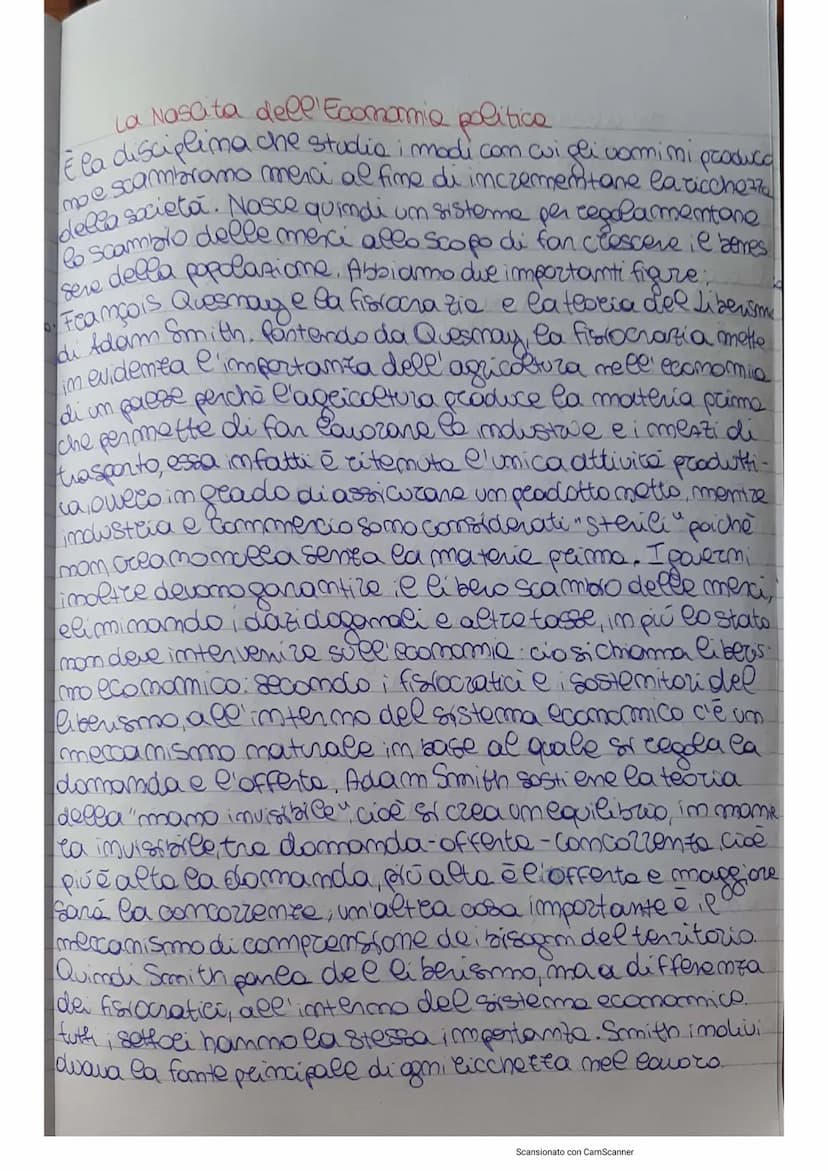 La Nascita dell'Economia politica
È la disciplina che studia i modi con cui gli uomini produco
no e scambiano merci al fine di incrementare la ricchezza
della società. Nasce quindi un sistema per regolamentare
lo scambio delle merci allo scopo di far crescere il benes
sere della popolazione. Abbiamo due importanti figure:
François Quesnay e la fisiocrazia e la teoria del Liberismo
di Adam Smith. Partendo da Quesnay, la fisiocrazia mette
in evidenza l'importanza dell'agricoltura nell'economia
di un paese perché l'agricoltura produce la materia prima
che permette di far lavorare le industrie e i mezzi di
trasporto, essa infatti è ritenuta l'unica attività produtti-
va, ovvero in grado di assicurare un prodotto netto, mentre
industria e commercio sono considerati "sterili" poiché
non creano nulla senza la materia prima. I governi
inoltre devono garantire il libero scambio delle merci,
eliminando i dazi doganali e altre tasse, in più lo stato
non deve intervenire sull'economia: ciò si chiama liberis-
mo economico: secondo i fisiocratici e i sostenitori del
liberismo, all'interno del sistema economico c'è un
meccanismo naturale in base al quale si regola la
domanda e l'offerta. Adam Smith sostiene la teoria
della "mano invisibile", cioè si crea un equilibrio, in manie
ra invisibile, tra domanda-offerta-concorrenza, cioè
più è alta la domanda, più alta è l'offerta e maggiore
sarà la concorrenza, un'altra cosa importante è il
meccanismo di comprensione dei bisogni del territorio.
Quindi Smith parla del liberismo, ma a differenza
dei fisiocratici, all'interno del sistema economico
tutti i settori hanno la stessa importanza. Smith indivi
duava la fonte principale di ogni ricchezza nel lavoro.
Scansionato con CamScanner